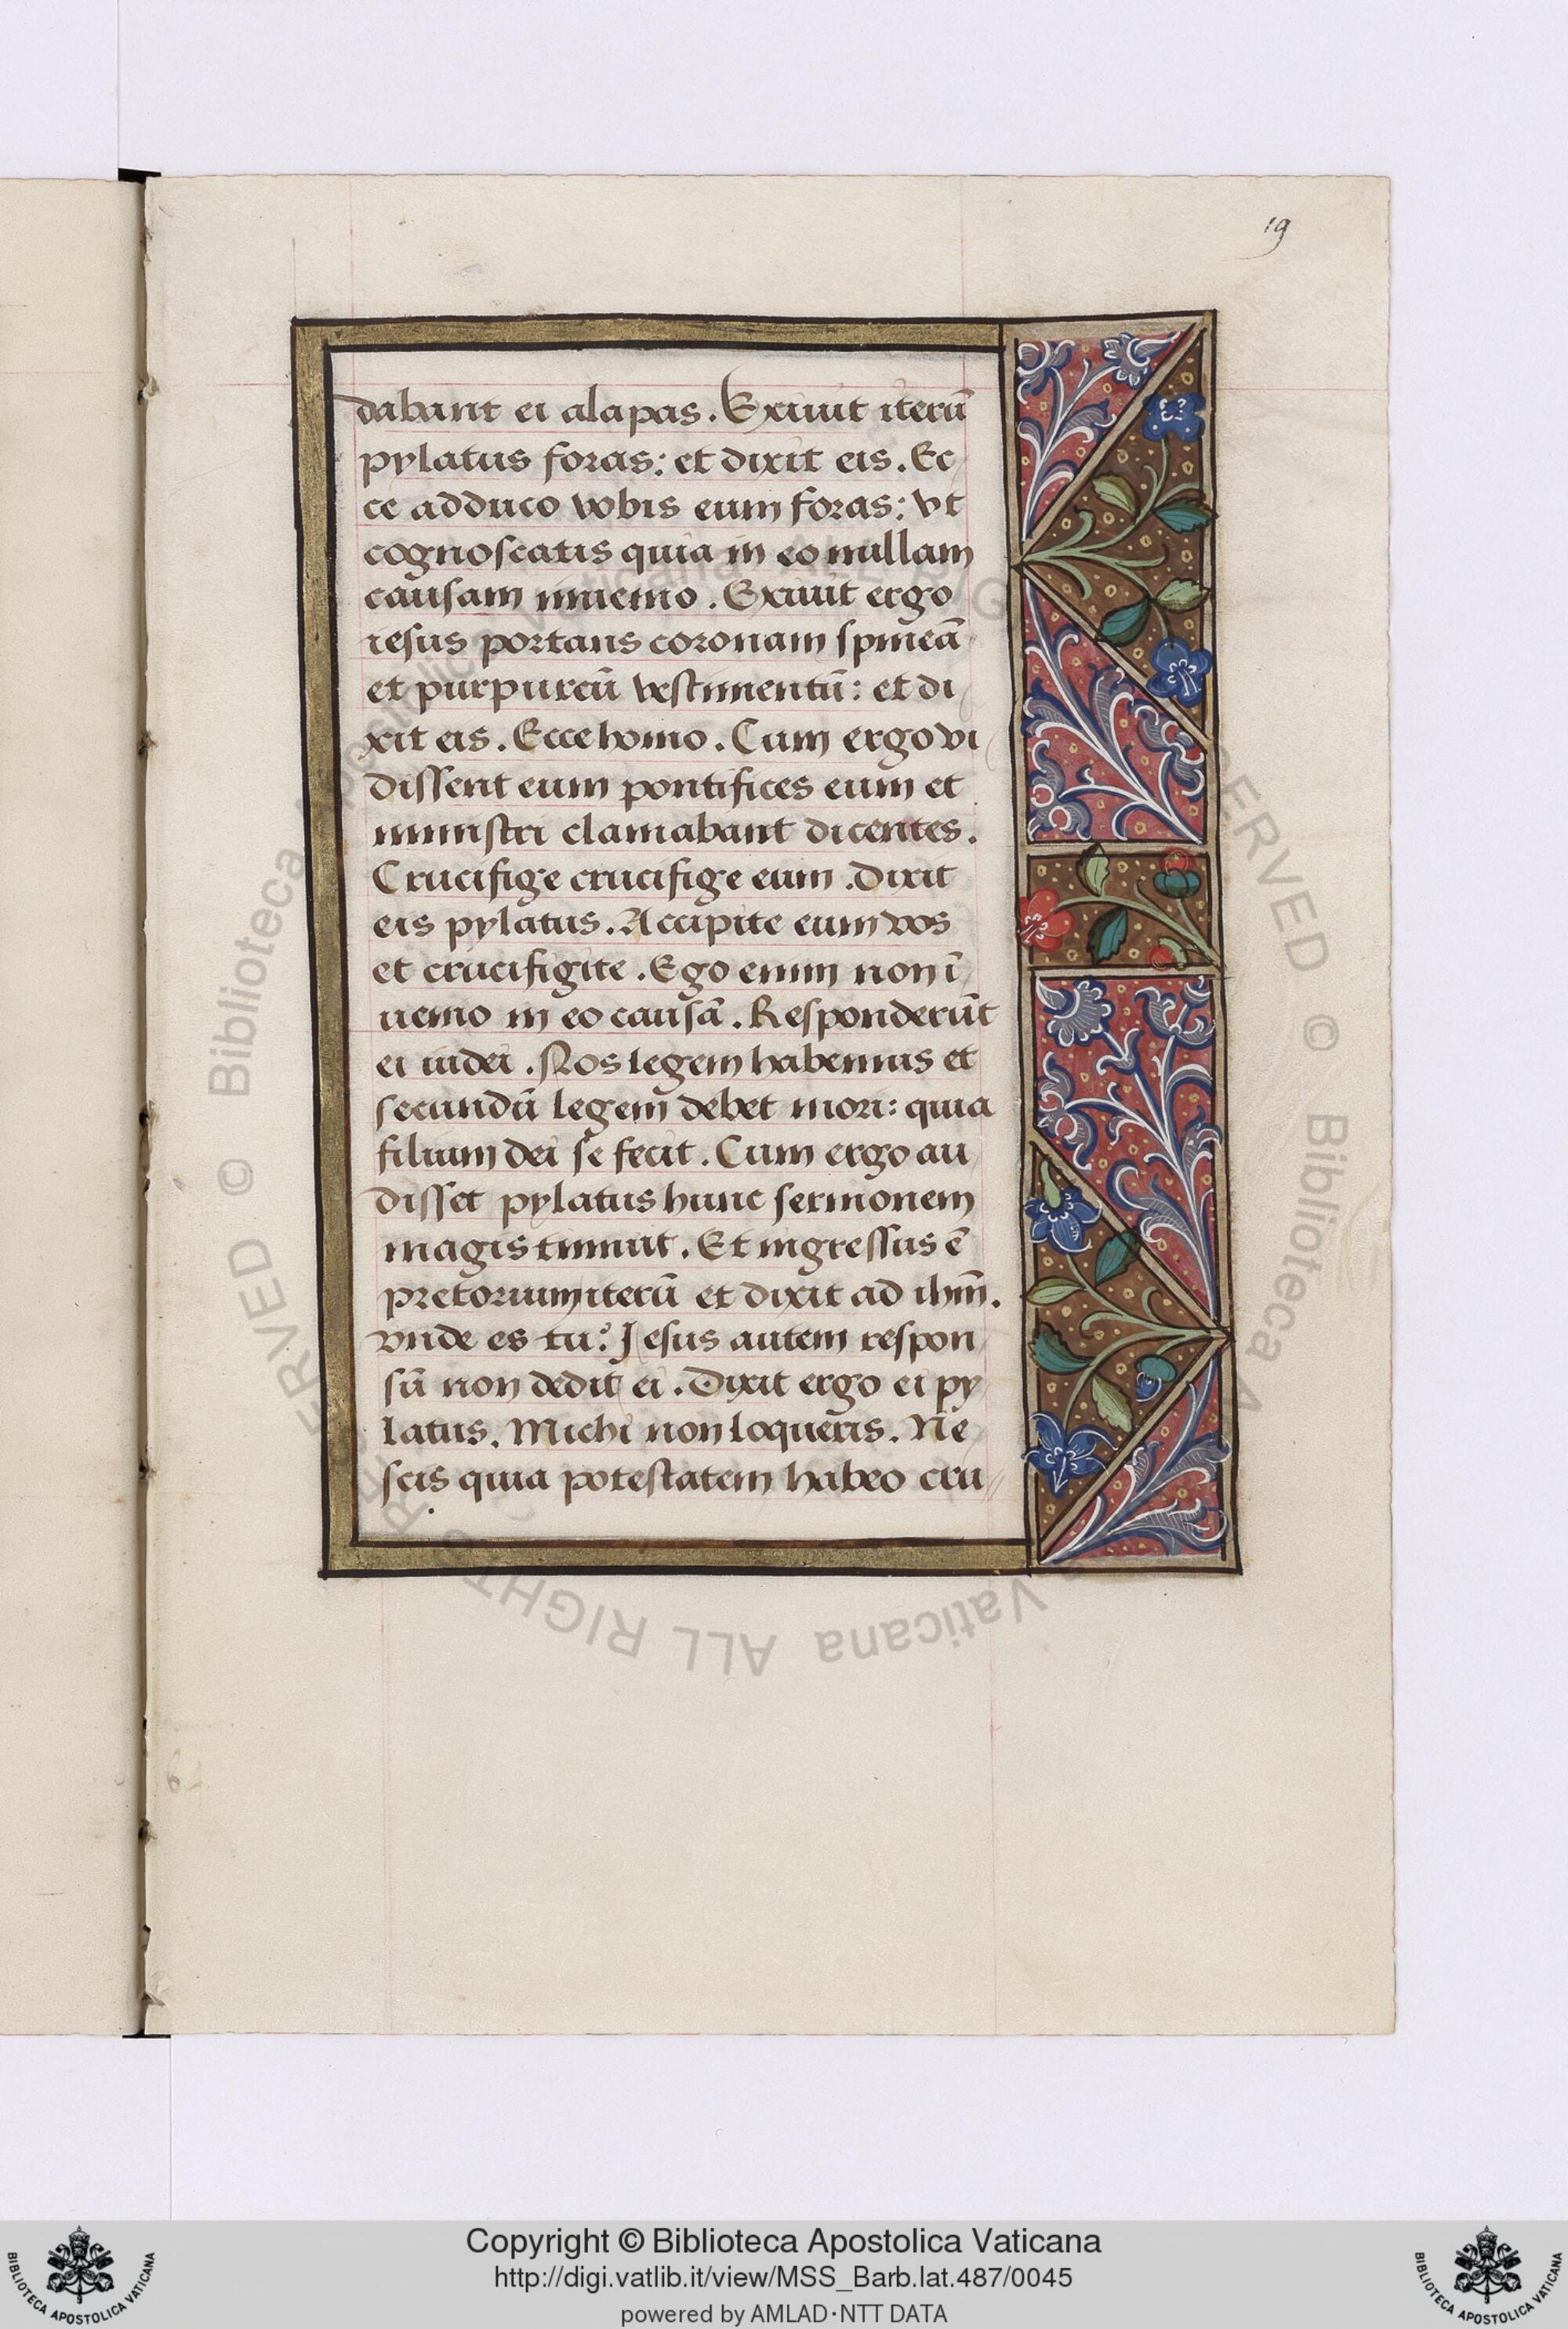 19
dabant ei alapas. Exiuit iterū
pylatus foras: et dixit eis. Ec
ce adduco vobis eum foras: vt
cognoscatis quia in eo nullam
causam inuenio. Exiuit ergo
iesus portans coronam spineā
et purpureū vestimentū: et di
xit eis. Ecce homo. Cum ergo vi
dissent eum pontifices eum et
ministri clamabant dicentes.
Crucifige crucifige eum. Dixit
eis pylatus. Accipite eum vos
et crucifigite. Ego enim non ī
uenio in eo causā. Responderūt
ei iudei. Nos legem habemus et
secundū legem debet mori: quia
filium dei se fecit. Cum ergo au
disset pylatus hunc sermonem
magis timuit. Et ingressus ē
pretorium iterū et dixit ad ihm̄.
vnde es tu? Jesus autem respon
sū non dedit ei. Dixit ergo ei py
latus. Michi non loqueris. Ne
scis quia potestatem habeo cru
© Biblioteca Apostolica Vaticana ALL RIGHTS RESERVED
Copyright © Biblioteca Apostolica Vaticana
http://digi.vatlib.it/view/MSS_Barb.lat.487/0045
powered by AMLAD·NTT DATA
BIBLIOTECA APOSTOLICA VATICANA
BIBLIOTECA APOSTOLICA VATICANA